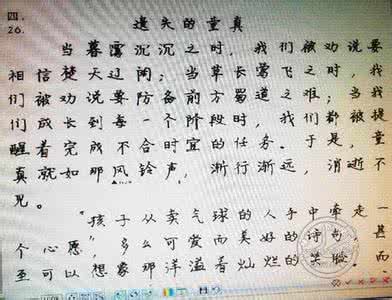 四、
26. 遗失的童真
当暮霭沉沉之时，我们被劝说要
相信楚天辽阔；当草长莺飞之时，我
们被劝说要防备前方蜀道之难；当我
们成长到每一个阶段时，我们都被提
醒着完成不合时宜的任务。于是，童
真就如那风铃声，渐行渐远，消逝不
见。
“孩子从卖气球的人手中牵走一
个心愿”，多么可爱而美好的诗句，甚而
至可以想象那洋溢着灿烂的笑脸。